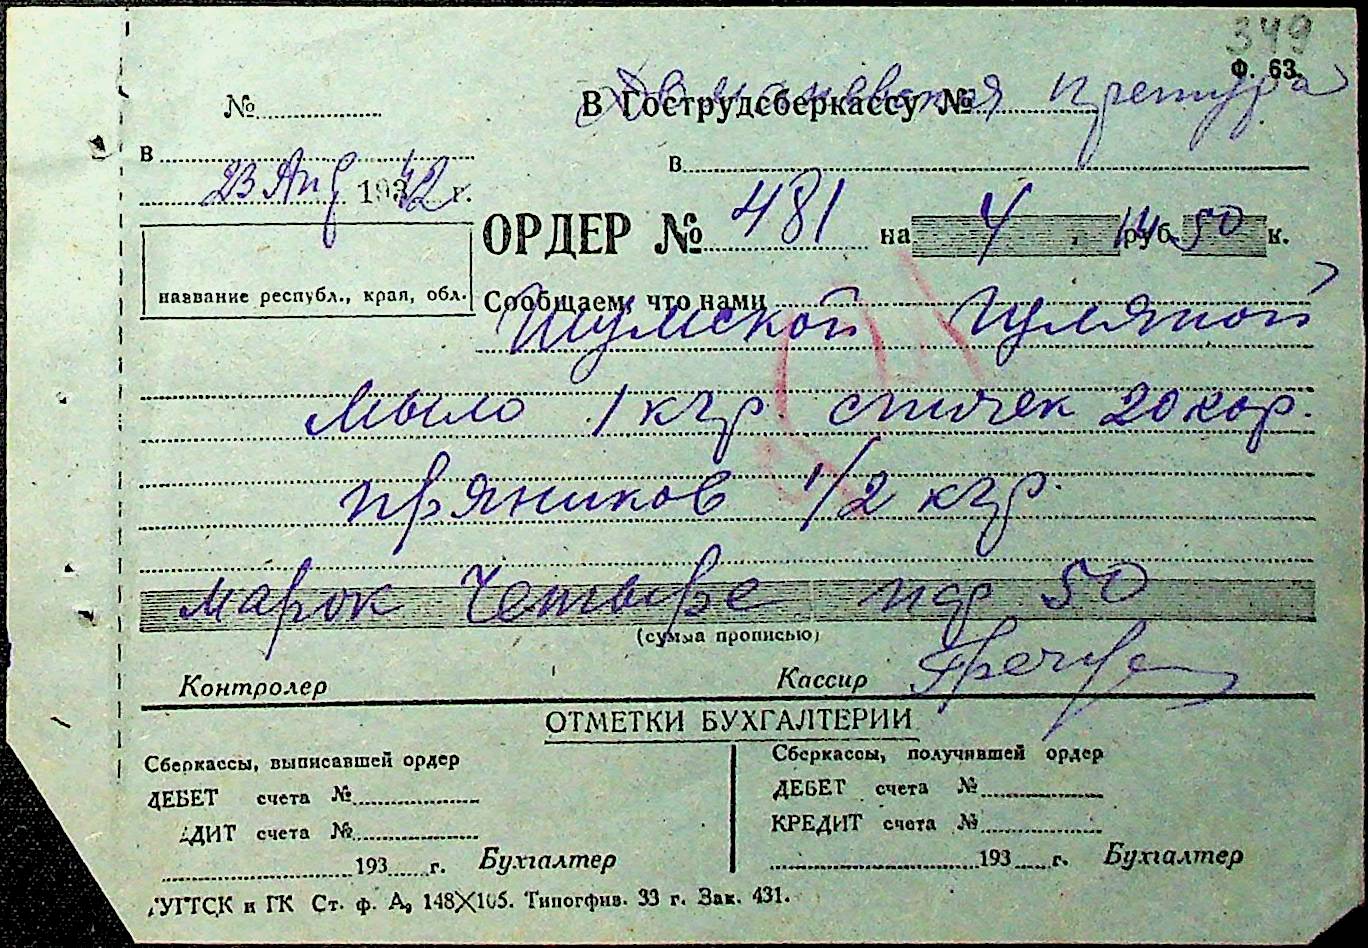 349
Ф. 63.
№ В Гострудсберкассу №
в в
23 Апр 1942 г.
ОРДЕР № 481 на 4 м руб. 50 к.
название республ., края, обл.
Сообщаем, что нами
Шумской Гуляной
мыло 1 кгр. спичек 20 кор.
пряников 1/2 кгр.
марок Четыре пф 50
(сумма прописью)
Контролер Кассир
ОТМЕТКИ БУХГАЛТЕРИИ
Сберкассы, выписавшей ордер Сберкассы, получившей ордер
ДЕБЕТ счета № ДЕБЕТ счета №
ЕДИТ счета № КРЕДИТ счета №
193 г. Бухгалтер 193 г. Бухгалтер
ГУГТСК и ГК Ст. ф. А, 148×105. Типогфив. 33 г. Зак. 431.